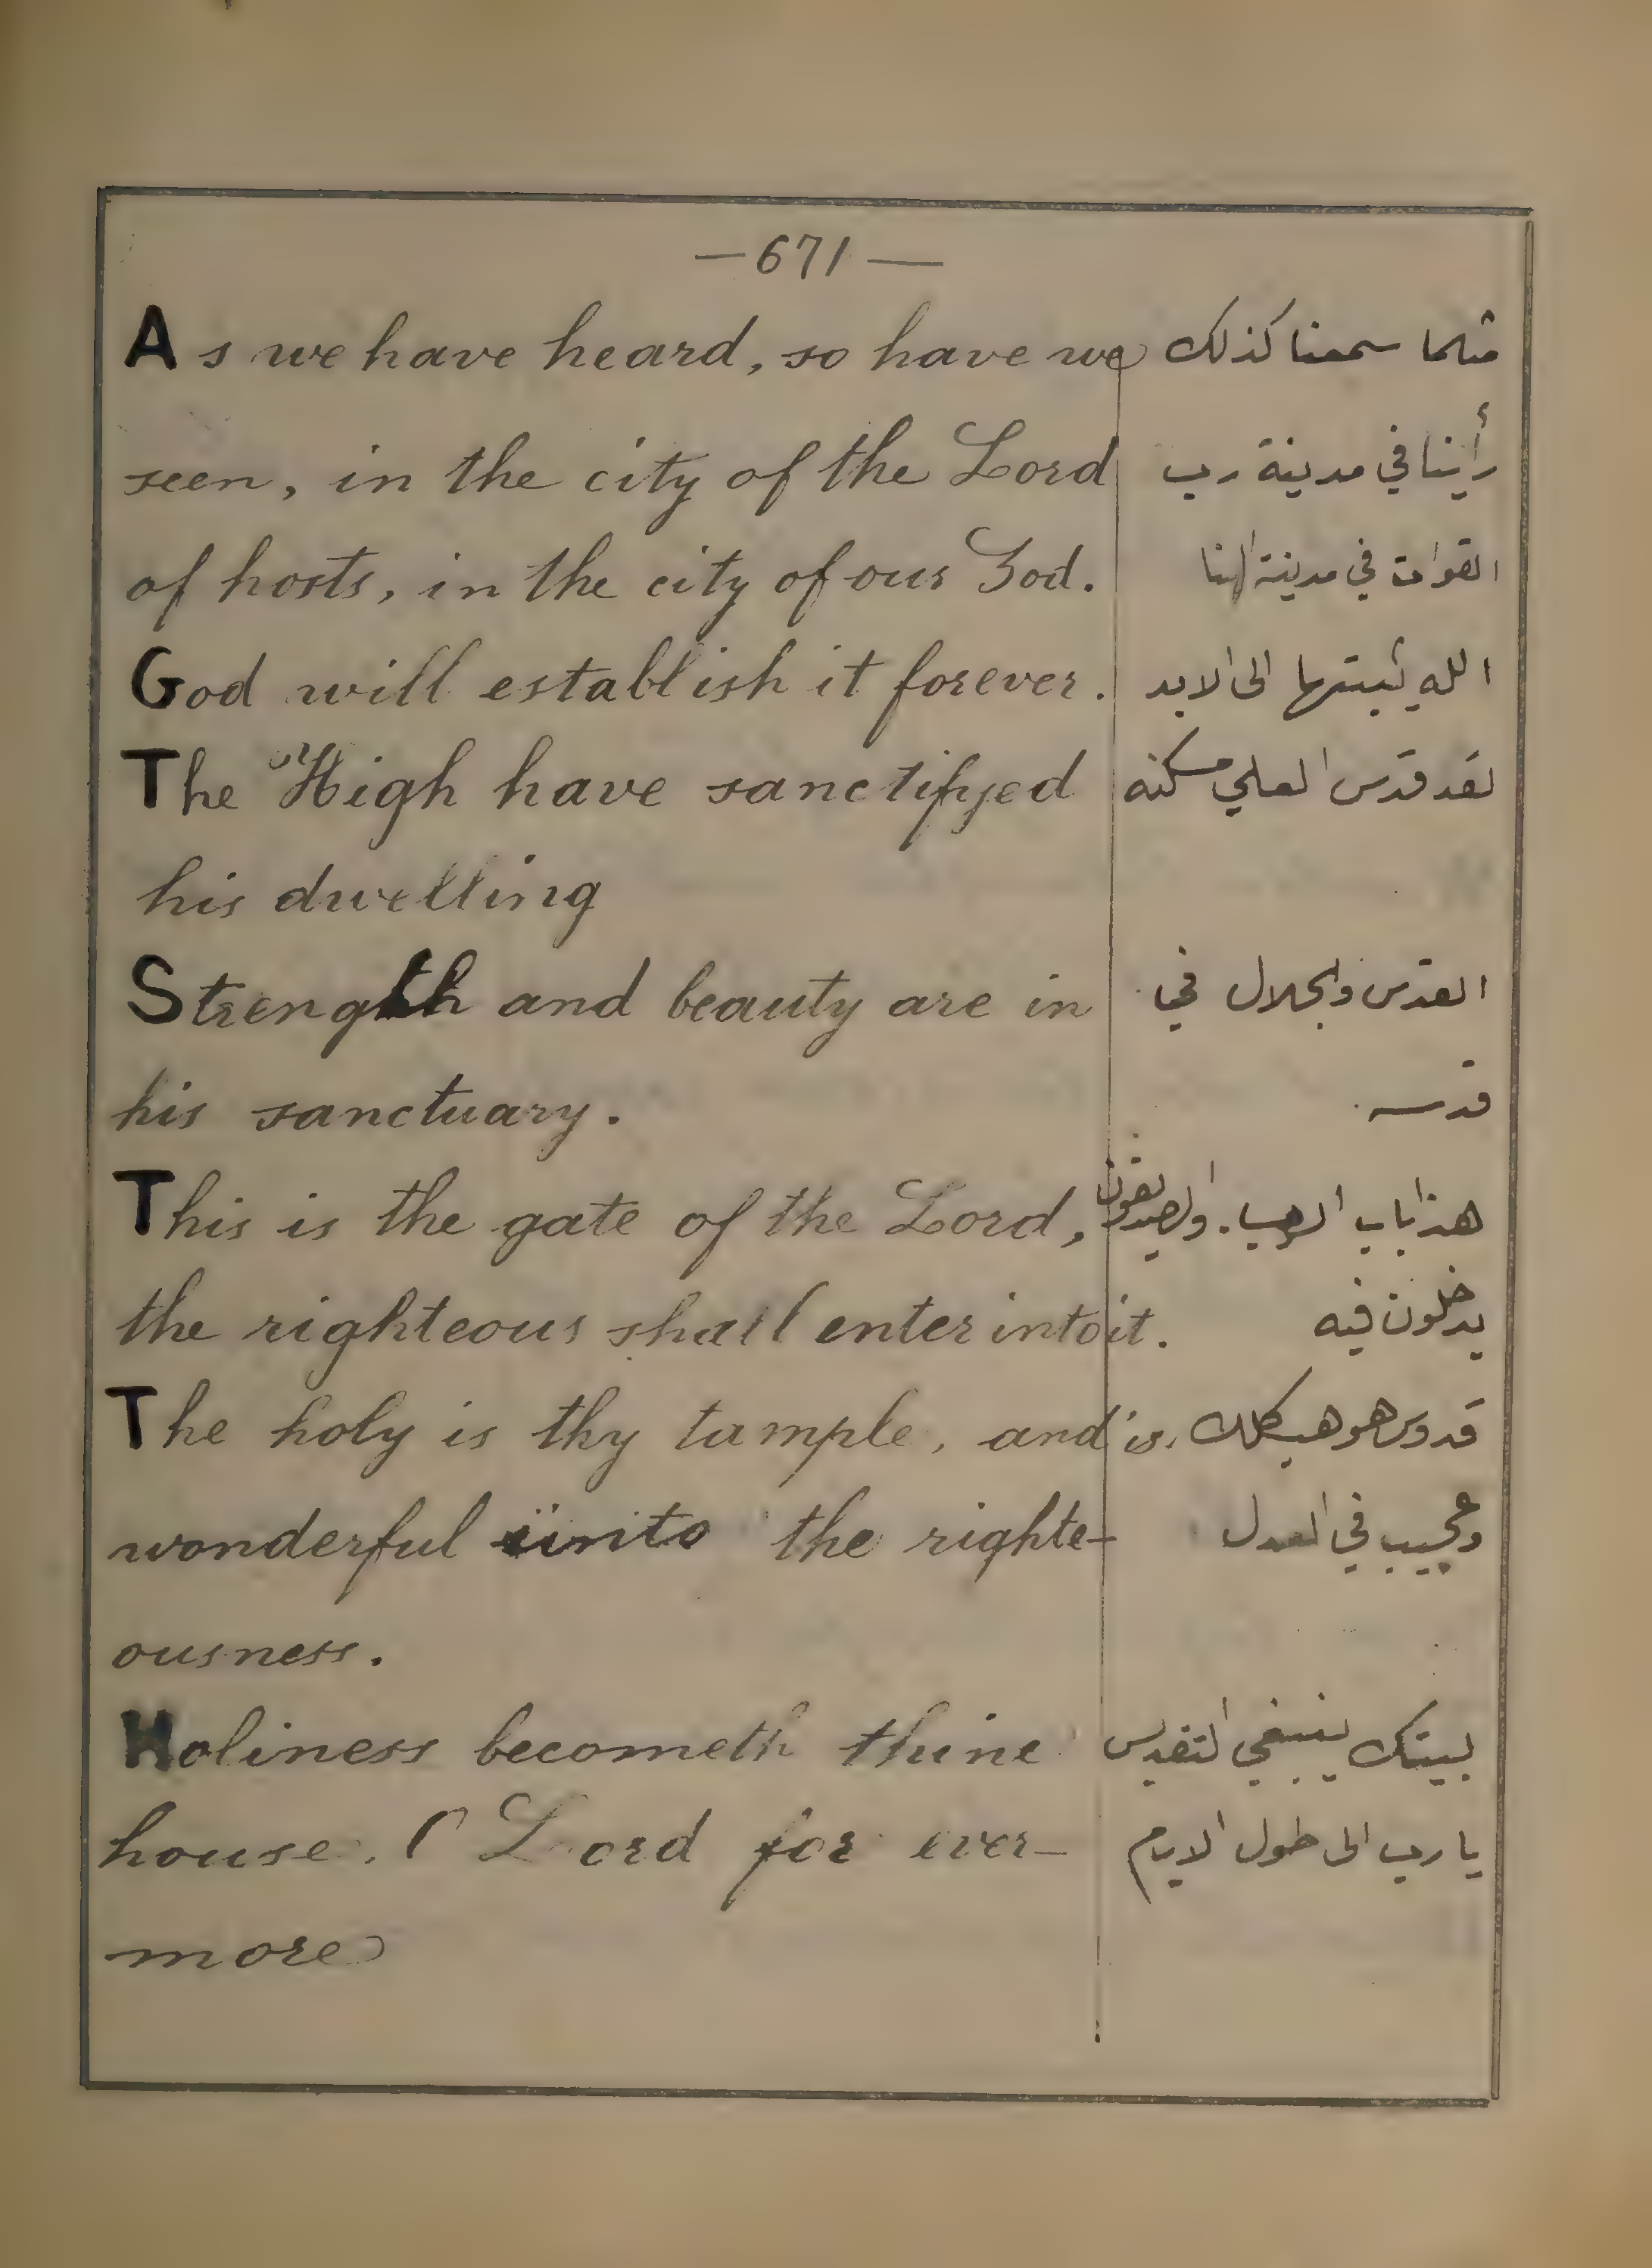 —671—
As we have heard, so have we مثلما سمعنا كذلك
seen, in the city of the Lord رأينا في مدينة رب
of hosts, in the city of our God. القوات في مدينة الهنا
God will establish it forever. الله يثبتها الى الابد
The High have sanctifyed لقد قدس العلي مسكنه
his dwelling
Strength and beauty are in القدس والجلال في
his sanctuary. قدسه
This is the gate of the Lord, هذا باب الرب. والصديقون
the righteous shall enter into it. يدخلون فيه
The holy is thy tample, and is, قدوس هو هيكلك
wonderful unto the righte- وعجيب في العدل
ousness.
Holiness becometh thine لبيتك ينبغي التقديس
house. O Lord for ever- يا رب الى طول الايام
more